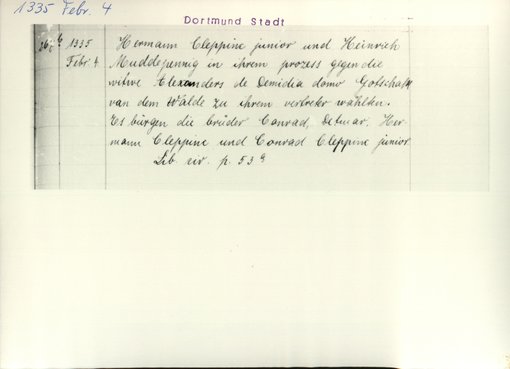 1335 Febr. 4
Dortmund Stadt
1335
Febr. 4.
Hermann Cleppine junior und Heinrich
Muddepennig in ihrem prozess gegen die
witwe Alexanders de Dimidia domo Gotschalk
van dem Walde zu ihrem vertreter wählten.
Es bürgen die brüder Conrad, Detmar, Her-
mann Cleppine und Conrad Cleppine junior.
Lib. civ. p. 53 a